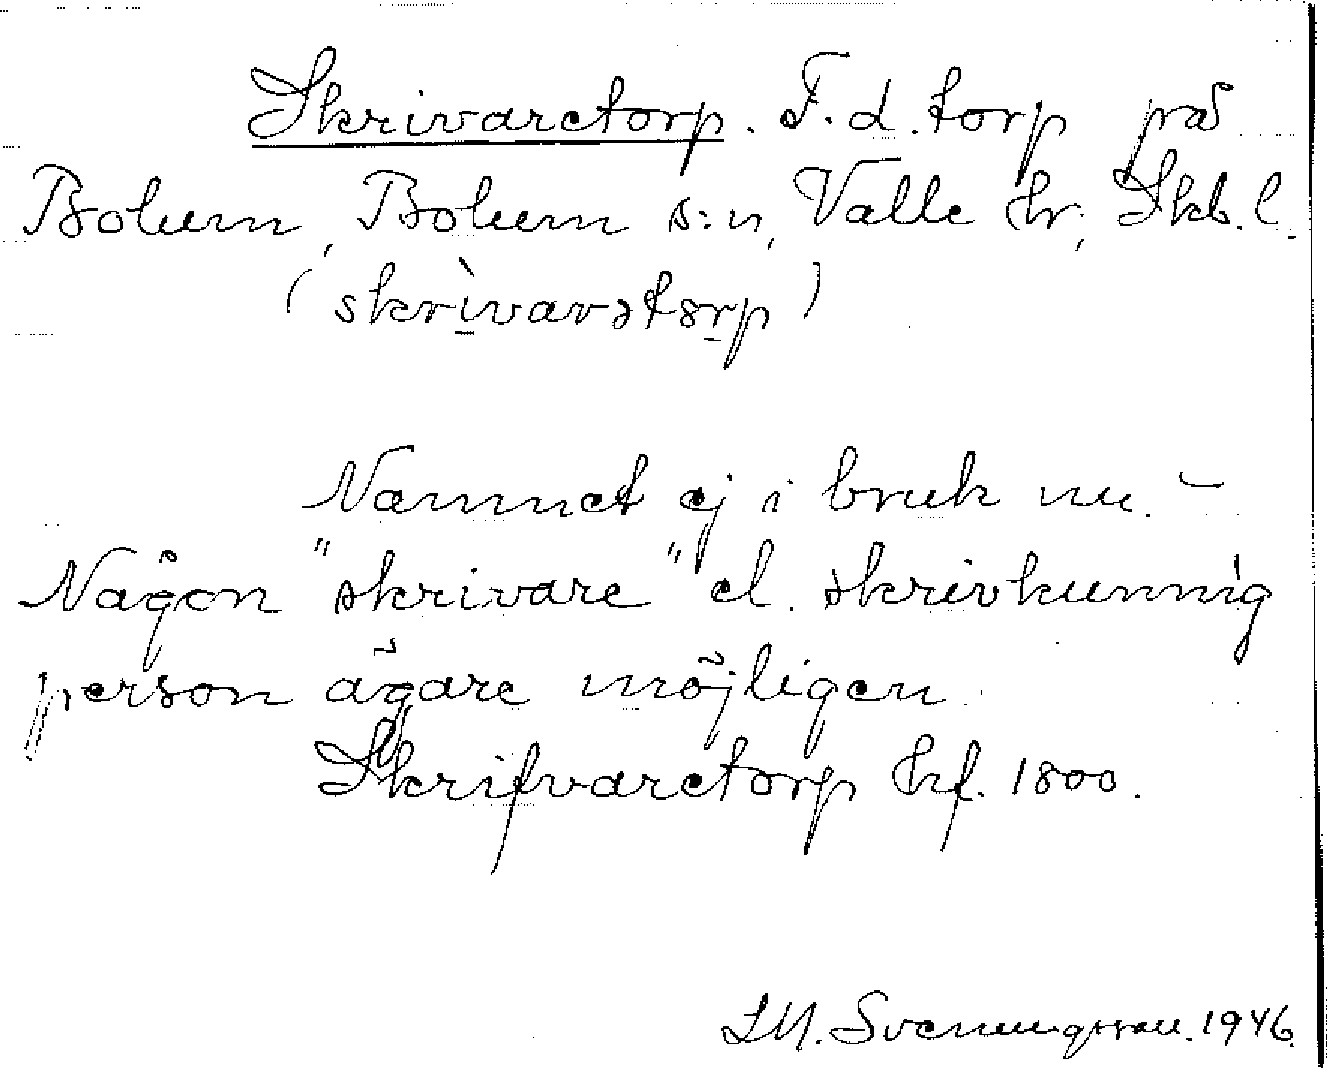 Skrivaretorp. F.d. torp på
Bolum, Bolum s:n, Valle hr, Skb. l.
(skrìvarətorp)
Namnet ej i bruk nu. –
Någon "skrivare" el. skrivkunnig
person ägare möjligen.
Skrifvaretorp hf. 1800.
S.M. Svenungsson. 1946.